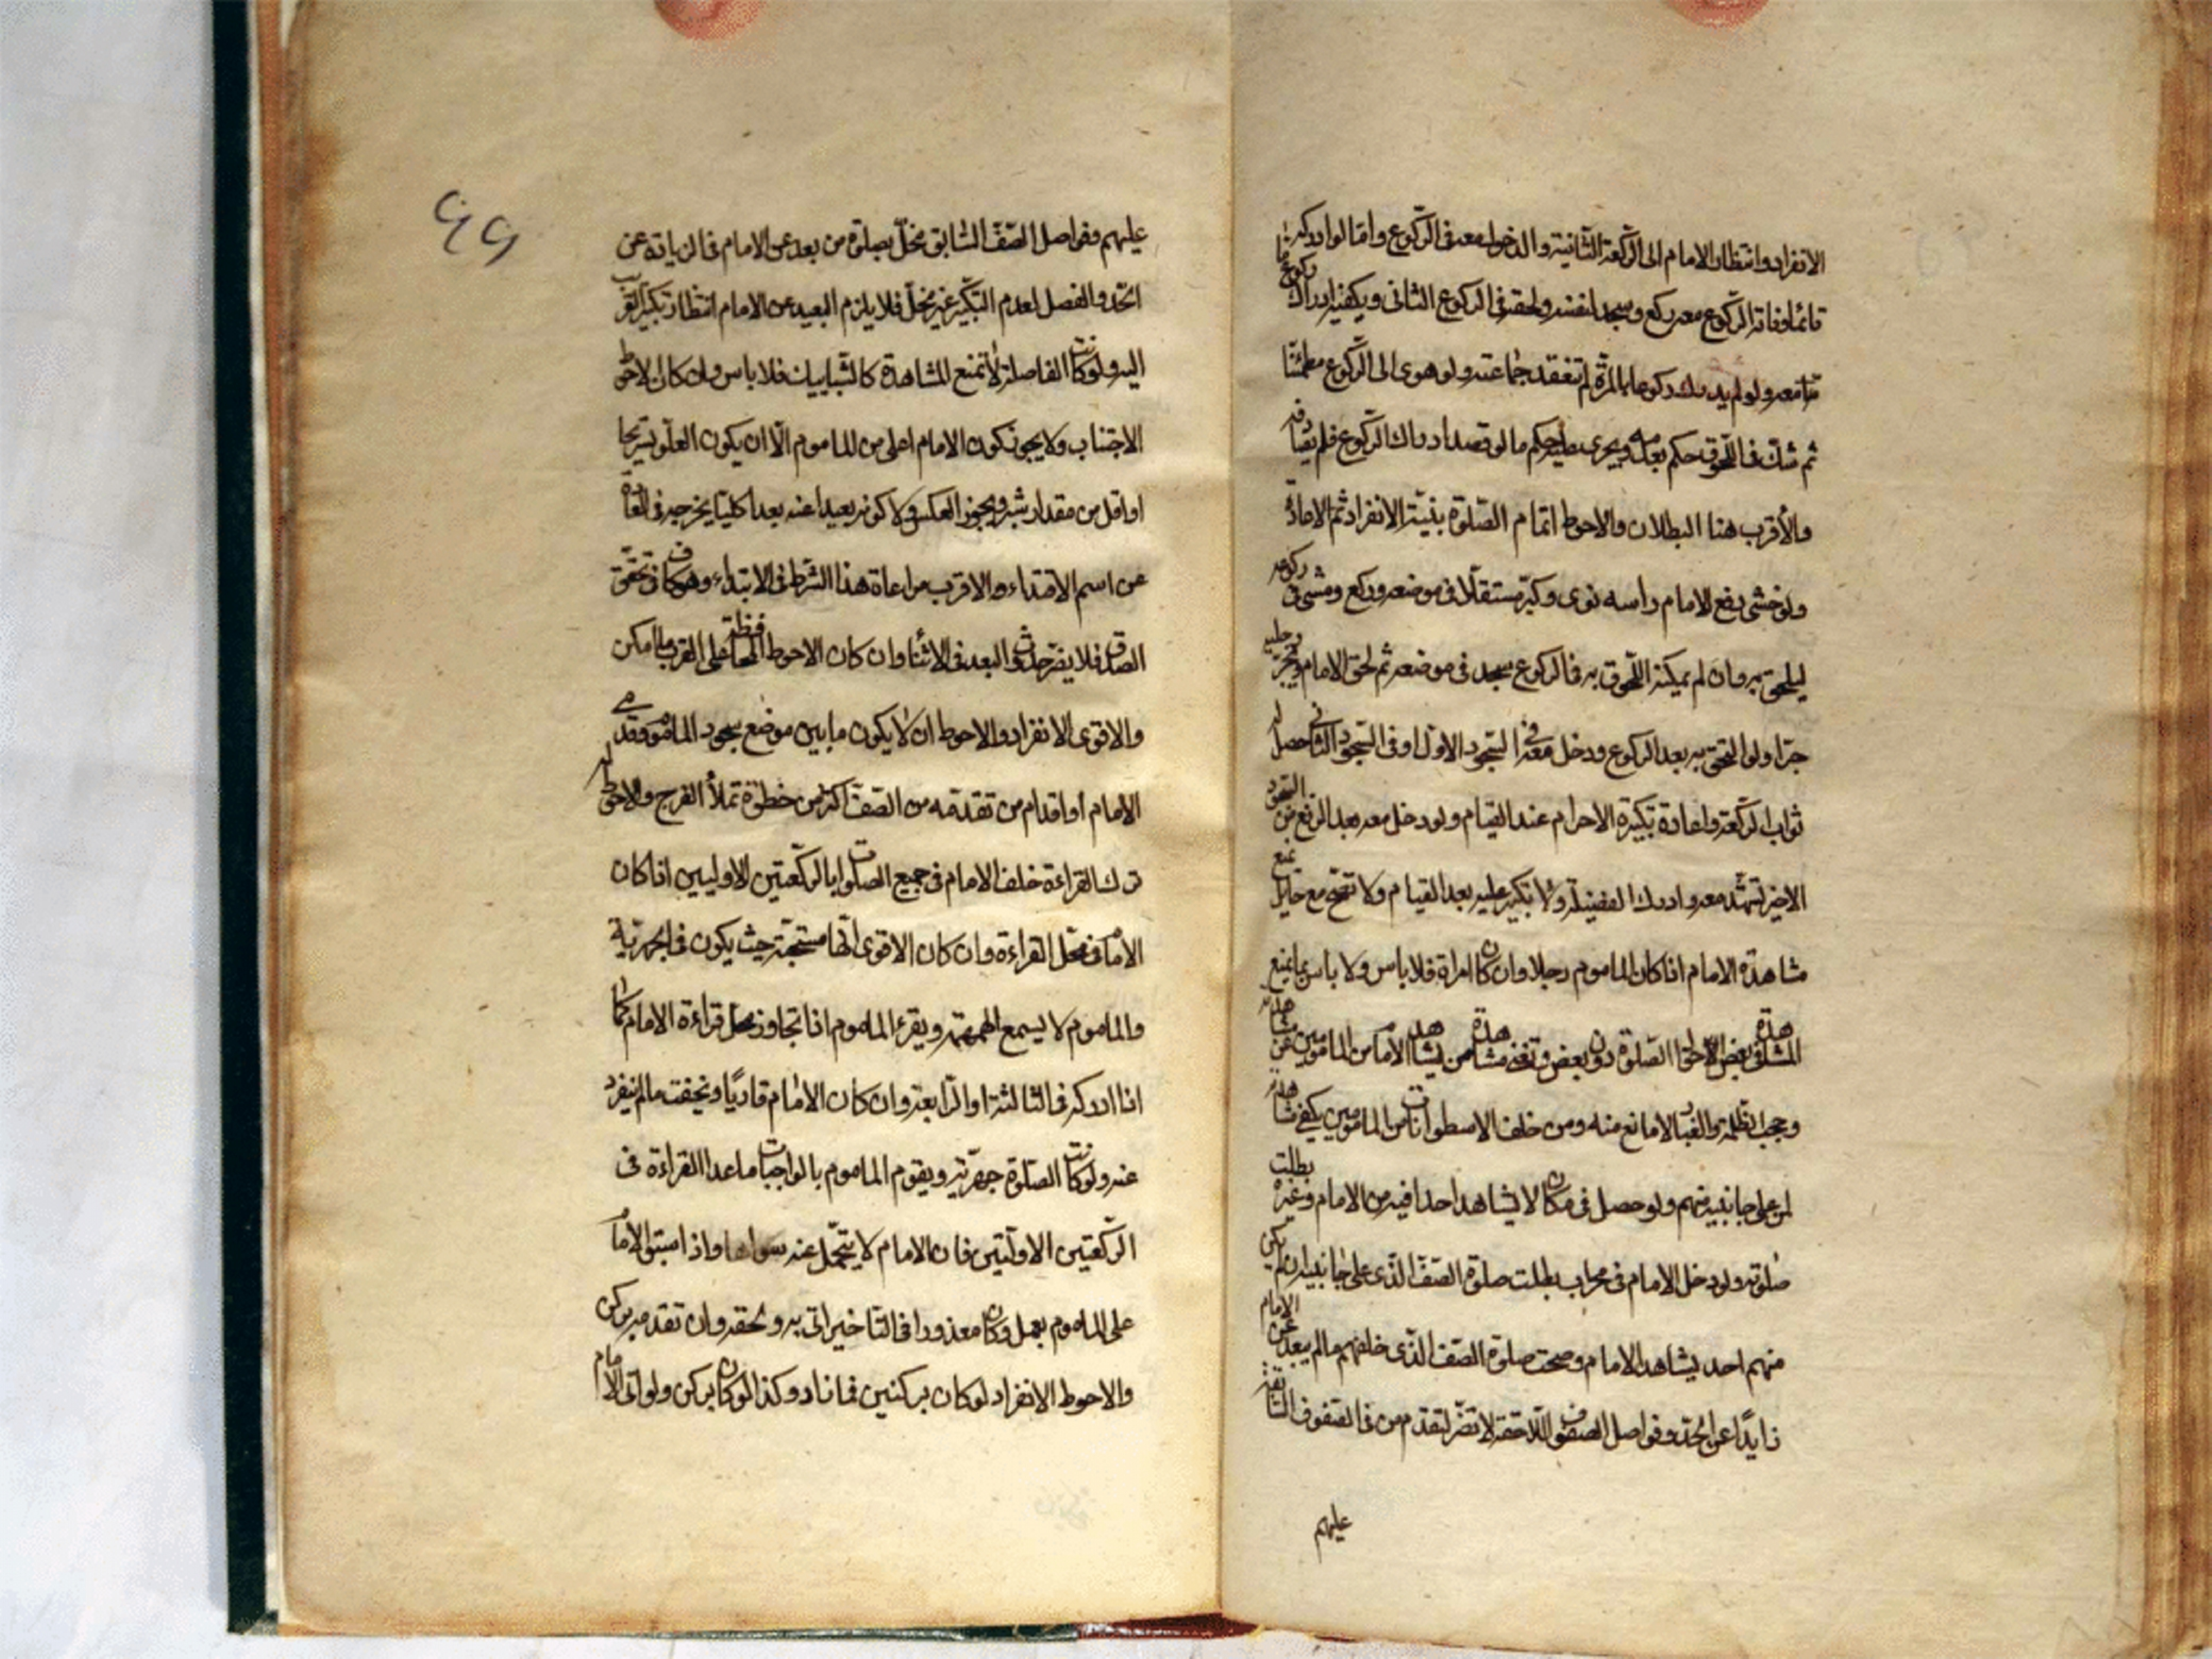 الانفراد وانتظار الامام الى الركعة الثانية والدخول معه فى الركوع واما لو ادركه
قائما وفاته الركوع معه ركع وسجد لنفسه ولحقه فى الركوع الثانى ويكفيه ادراك ركوع ما
تاما معه ولو لم يدرك ركوعا بالمرة لم تنعقد جماعته ولو هوى الى الركوع مطمئنا
ثم شك فى اللحوق حكم بعدمه ويجرى عليه حكم ما لو قصد ادراك الركوع فلم
والأقرب هنا البطلان والاحوط اتمام الصلوة بنية الانفراد ثم الاعادة
ولو خشى رفع الامام راسه نوى وكبر مستقلا فى موضعه وركع ومشى فى ركوعه
ليلحق به وان لم يمكنه اللحوق به فى الركوع سجد فى موضعه ثم لحق الامام ويجر رجليه
جرا ولو التحق به بعد الركوع ودخل معه فى السجود الاول او فى السجود الثانى حصل له
ثواب الركعة واعادة تكبيرة الاحرام عند القيام ولو دخل معه بعد الرفع من السجود
الاخير تشهد معه وادرك الفضيلة ولا تكبير عليه بعد القيام ولا تصح مع حائل يمنع
مشاهدة الامام اذا كان الماموم رجلا وان كان امراة فلا باس ولا باس بما يمنع
المشاهدة فى بعض احوال الصلوة دون بعض وتغنى مشاهدة من يشاهد الامام من المامومين عن مشاهدته
وحجب الظلمة والغبار لا مانع منه ومن خلف الاسطوانات من المامومين يكفى مشاهدته
لمن على جانبيه منهم ولو حصل فى مكان لا يشاهد احدا فيه من الامام وغيره بطلت
صلوته ولو دخل الامام فى محراب بطلت صلوة الصف الذى على جانبيه ان لم يكن
منهم احد يشاهد الامام وصحت صلوة الصف الذى خلفهم ما لم يبعد عن الامام
زايدًا عن الحد وفواصل الصفوف اللاحقة لا تضر لتقدم من فى الصفوف السابقة
عليهم
٤٩
عليهم وفواصل الصف السابق مخل بصلوة من بعد عن الامام فى الزيادة عن
الحد والفصل لعدم التكبير غير مخل فلا يلزم البعيد عن الامام انتظار تكبير القريب
اليه ولو كانت الفاصلة لا تمنع المشاهدة كالشبابيك فلا باس وان كان الاحوط
الاجتناب ولا يجوز كون الامام اعلى من الماموم الا ان يكون العلو تسريحا
او اقل من مقدار شبر ويجوز العكس ولا كونه بعيدا عنه بعدا كليا يخرجه فى العادة
عن اسم الاقتداء والاقرب مراعاة هذا الشرط فى الابتداء وهو كاف فى تحقق
الصدق فلا يضر حدوث البعد فى الاثناء وان كان الاحوط المحافظة على القرب ما امكن
والاقوى الانفراد والاحوط ان لا يكون ما بين موضع سجود الماموم وقدمى
الامام او اقدام من تقدمه من الصف اكثر من خطوة تملأ الفرج والاحوط له
ترك القراءة خلف الامام فى جميع الصلوات بالركعتين الاوليين اذا كان
الامام فى محل القراءة وان كان الاقوى انها مستحبة حيث يكون فى الجهرية
والماموم لا يسمع الهمهمة ويقرء الماموم اذا تجاوز محل قراءة الامام كما
اذا ادركه فى الثالثة او الرابعة وان كان الامام قاريًا ويخفت ما لم ينفرد
عنه ولو كانت الصلوة جهرية ويقوم الماموم بالواجبات ما عدا القراءة فى
الركعتين الاوليتين فان الامام لا يتحمل عنه سواها واذا سبق الامام
على الماموم بعمل وكان معذورا فى التاخير اتى به ولحقه وان تقدمه بركن
والاحوط الانفراد لو كان بركنين فما زاد وكذا لو كان بركن ولو اتى الامام